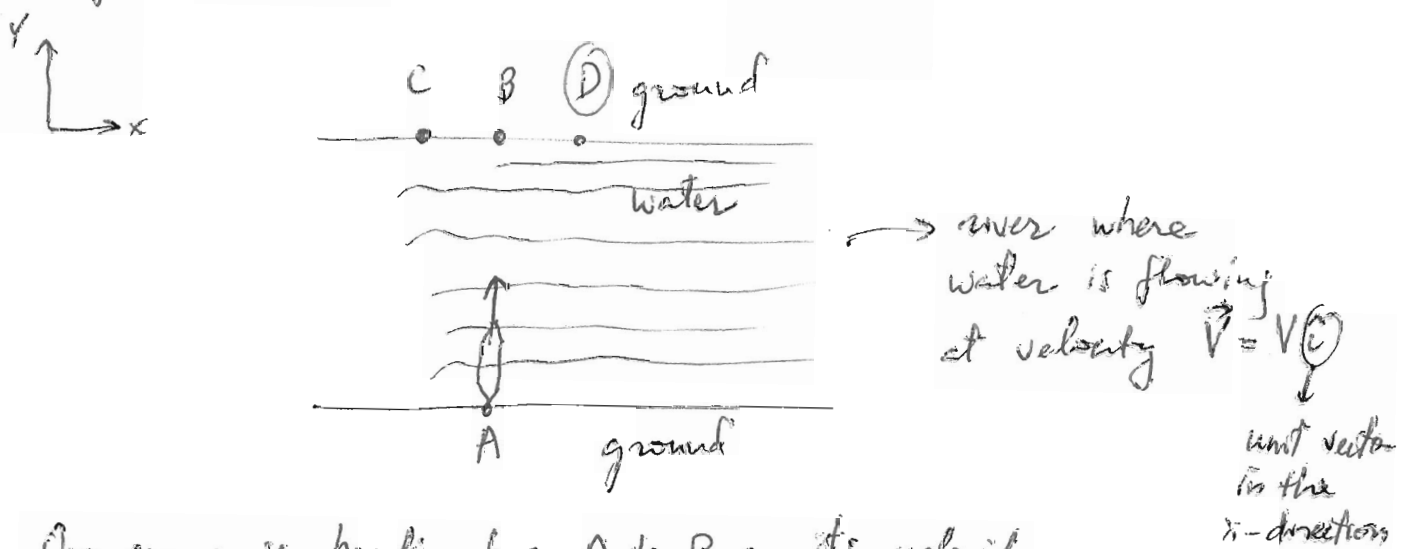 Y
X
C B D ground
water
river where
water is flowing
at velocity V⃗ = V î
A
ground
unit vector
in the
x-direction